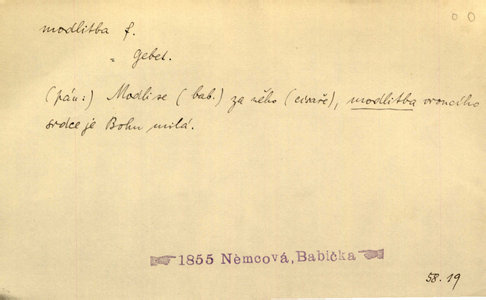 modlitba f.
„ Gebet.
(pán:) Modli se (bab.) za něho (císaře), modlitba vroucího
srdce je Bohu milá.
1855 Němcová, Babička
58.19